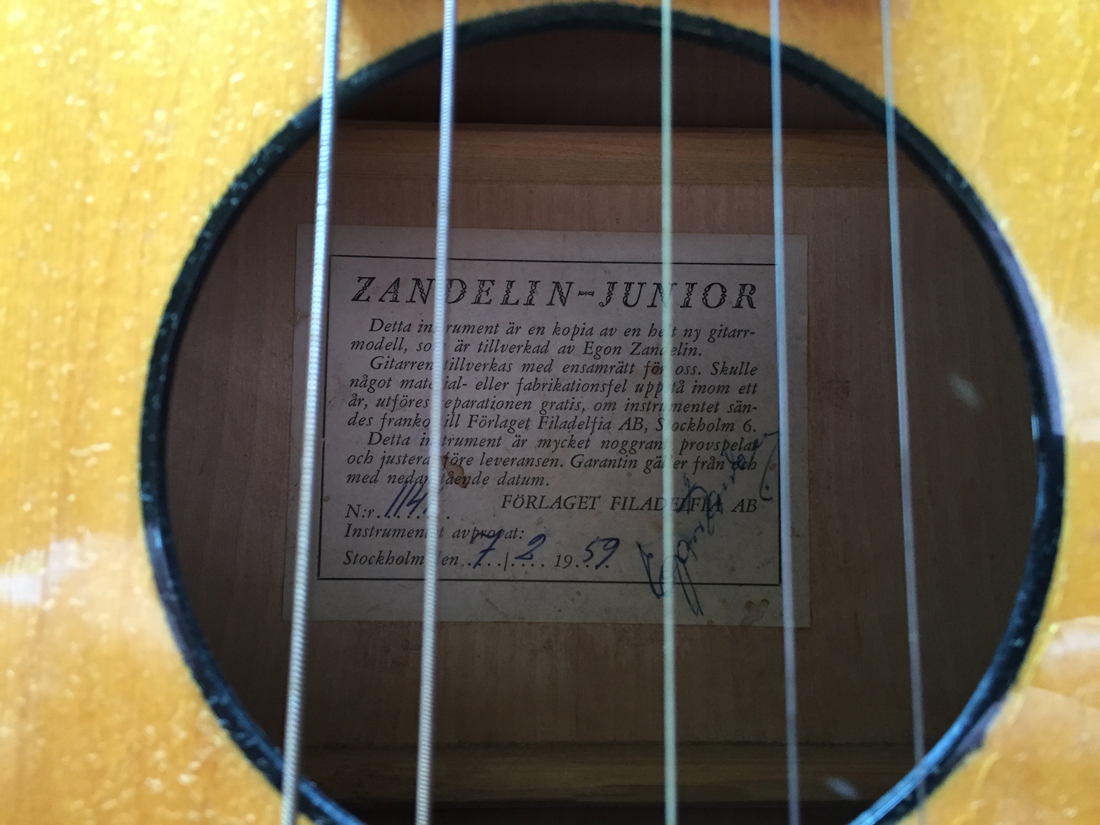 ZANDELIN-JUNIOR
Detta instrument är en kopia av en helt ny gitarr-
modell, som är tillverkad av Egon Zandelin.
Gitarren tillverkas med ensamrätt för oss. Skulle
något material- eller fabrikationsfel uppstå inom ett
år, utföres reparationen gratis, om instrumentet sän-
des franko till Förlaget Filadelfia AB, Stockholm 6.
Detta instrument är mycket noggrant provspelat
och justerat före leveransen. Garantin gäller från och
med nedanstående datum.
FÖRLAGET FILADELFIA AB
N:r
Instrumentet avprovat:
Stockholm den 7/2 1959